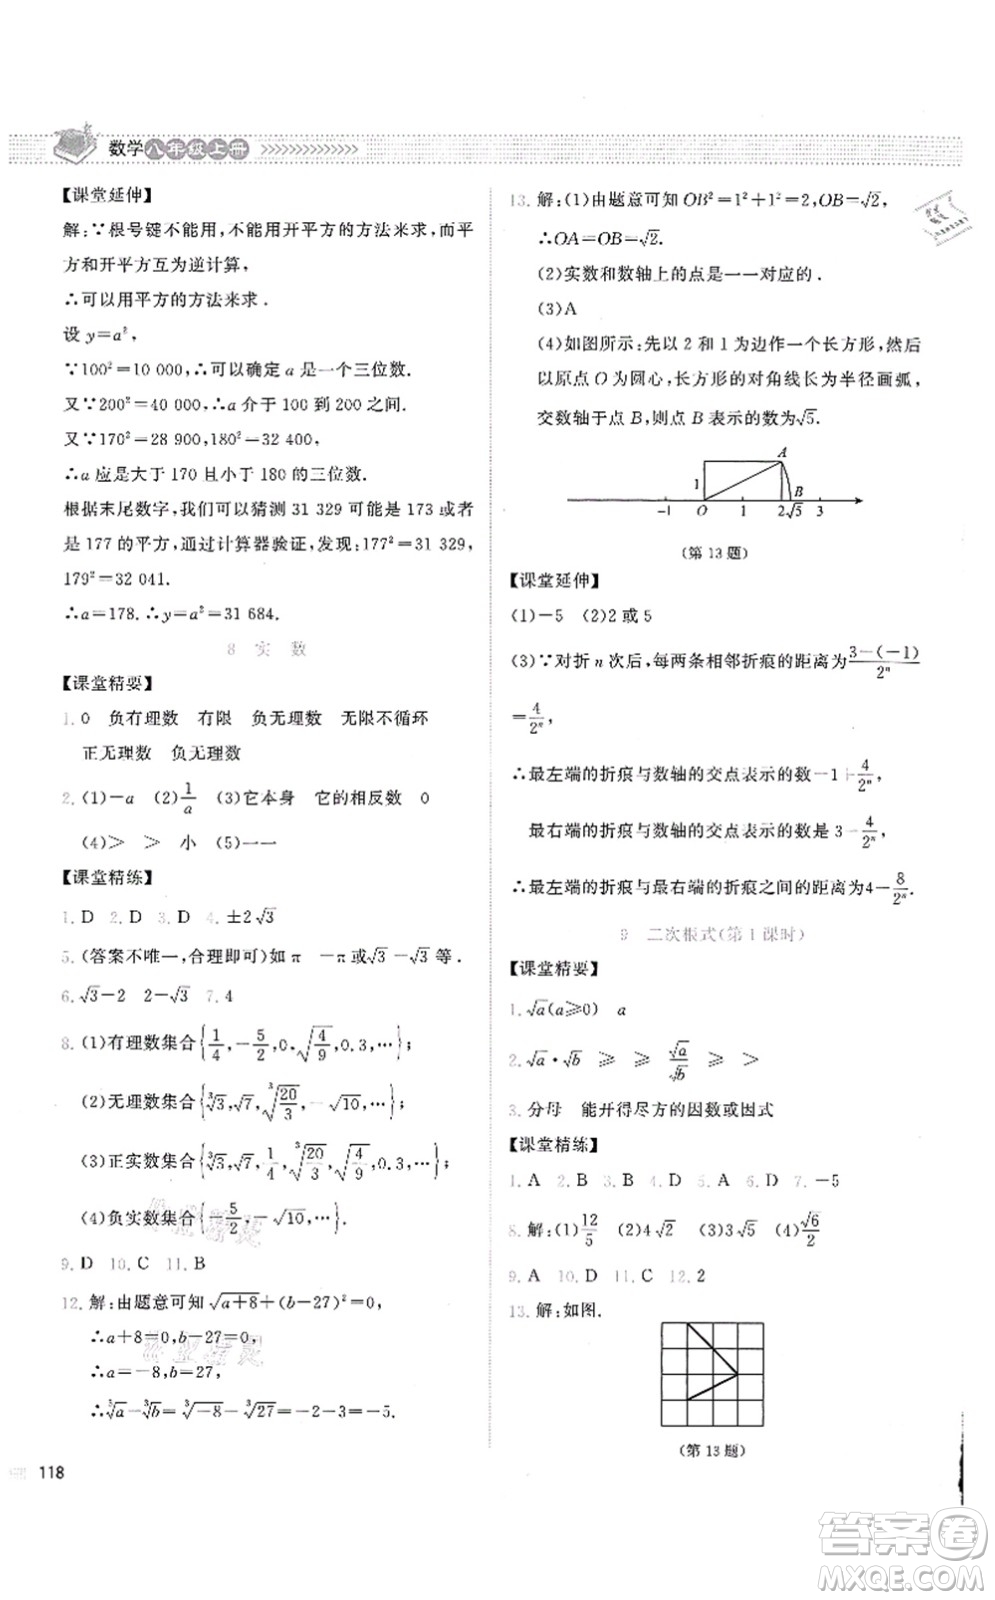 数学八年级上册
【课堂延伸】
解:∵根号键不能用,不能用开平方的方法来求,而平
方和开平方互为逆计算,
∴可以用平方的方法来求.
设 y=a²,
∵100²=10 000,∴可以确定 a 是一个三位数.
又∵200²=40 000,∴a 介于 100 到 200 之间.
又∵170²=28 900,180²=32 400,
∴a 应是大于 170 且小于 180 的三位数.
根据末尾数字,我们可以猜测 31 329 可能是 173 或
是 177 的平方,通过计算器验证,发现:177²=31 329,
179²=32 041.
∴a=178.∴y=a²=31 684.
8 实 数
【课堂精要】
1.0 负有理数 有限 负无理数 无限不循环
正无理数 负无理数
2.(1)-a (2)1/a (3)它本身 它的相反数 0
(4)> > 小 (5)一一
【课堂精练】
1.D 2.D 3.D 4.±2√3
5.(答案不唯一,合理即可)如 π -π 或√3等.
6.√3-2 2-√3 7.4
8.(1)有理数集合{1/4,-5/2,0,√(4/9),0.3,…};
(2)无理数集合{∛3,√7,∛(20/3),-√10,…};
(3)正实数集合{∛3,√7,1/4,∛(20/3),√(4/9),0.3,…};
(4)负实数集合{-5/2,-√10,…}.
9.D 10.C 11.B
12.解:由题意可知√(a+8)+(b-27)²=0,
∴a+8=0,b-27=0,
∴a=-8,b=27,
∴∛a-∛b=∛-8-∛27=-2-3=-5.
118
13.解:(1)由题意可知 OB²=1²+1²=2,OB=√2,
∴OA=OB=√2.
(2)实数和数轴上的点是一一对应的.
(3)A
(4)如图所示:先以 2 和 1 为边作一个长方形,然后
以原点 O 为圆心,长方形的对角线长为半径画弧,
交数轴于点 B,则点 B 表示的数为√5.
A
1
B
-1 O 1 2 √5 3
(第 13 题)
【课堂延伸】
(1)-5 (2)2 或 5
(3)∵对折 n 次后,每两条相邻折痕的距离为(3-(-1))/2ⁿ
=4/2ⁿ,
∴最左端的折痕与数轴的交点表示的数-1+4/2ⁿ,
最右端的折痕与数轴的交点表示的数是 3-4/2ⁿ,
∴最左端的折痕与最右端的折痕之间的距离为4-8/2ⁿ.
9 二次根式(第 1 课时)
【课堂精要】
1.√a(a⩾0) a
2.√a·√b ⩾ ⩾ √a/√b ⩾ >
3.分母 能开得尽方的因数或因式
【课堂精练】
1.A 2.B 3.C 4.D 5.A 6.D 7.-5
8.解:(1)12/5 (2)4√2 (3)3√2 (4)√6/2
9.A 10.D 11.C 12.2
13.解:如图.
(第 13 题)
答案卷
MXQE.COM